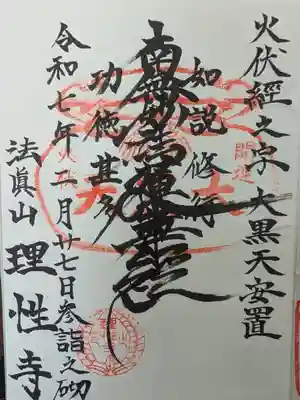 火伏経之宗 大黒天安置
如説修行
南無妙法蓮華経
功徳甚多
令和七年二月廿七日参詣之砌
法眞山 理性寺
開運